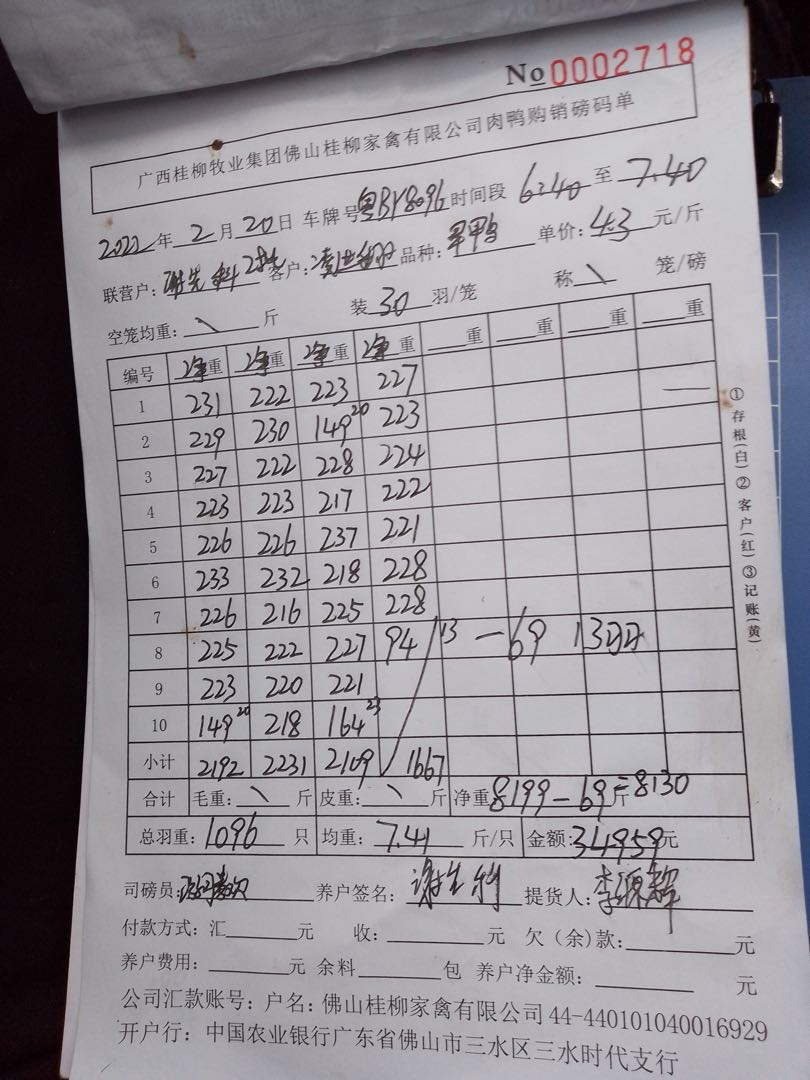 No 0002718
广西桂柳牧业集团佛山桂柳家禽有限公司肉鸭购销磅码单
2022年2月20日 车牌号粤BY8096时间段 6:40 至 7.40
联营户: 客户: 品种: 单价:4.3元/斤
空笼均重:\ 斤 装30羽/笼 称\ 笼/磅
编号 净重 净重 净重 净重 重 重 重 重
1 231 222 223 227 —
2 229 230 149 20 223
3 227 222 228 224
4 223 223 217 222
5 226 226 237 221
6 233 232 218 228
7 226 216 225 228
8 225 222 227 94 13 —69 13
9 223 220 221
10 149 20 218 164 23
小计 2192 2231 2109 1667
合计 毛重:\ 斤 皮重:\ 斤 净重8199—69斤=8130
总羽重:1096只 均重:7.41斤/只 金额:34959元
司磅员: 养户签名: 提货人:李源辉
付款方式:汇 元 收: 元 欠(余)款: 元
养户费用: 元 余料 包 养户净金额: 元
公司汇款账号:户名:佛山桂柳家禽有限公司44-440101040016929
开户行:中国农业银行广东省佛山市三水区三水时代支行
①存根(白)②客户(红)③记账(黄)